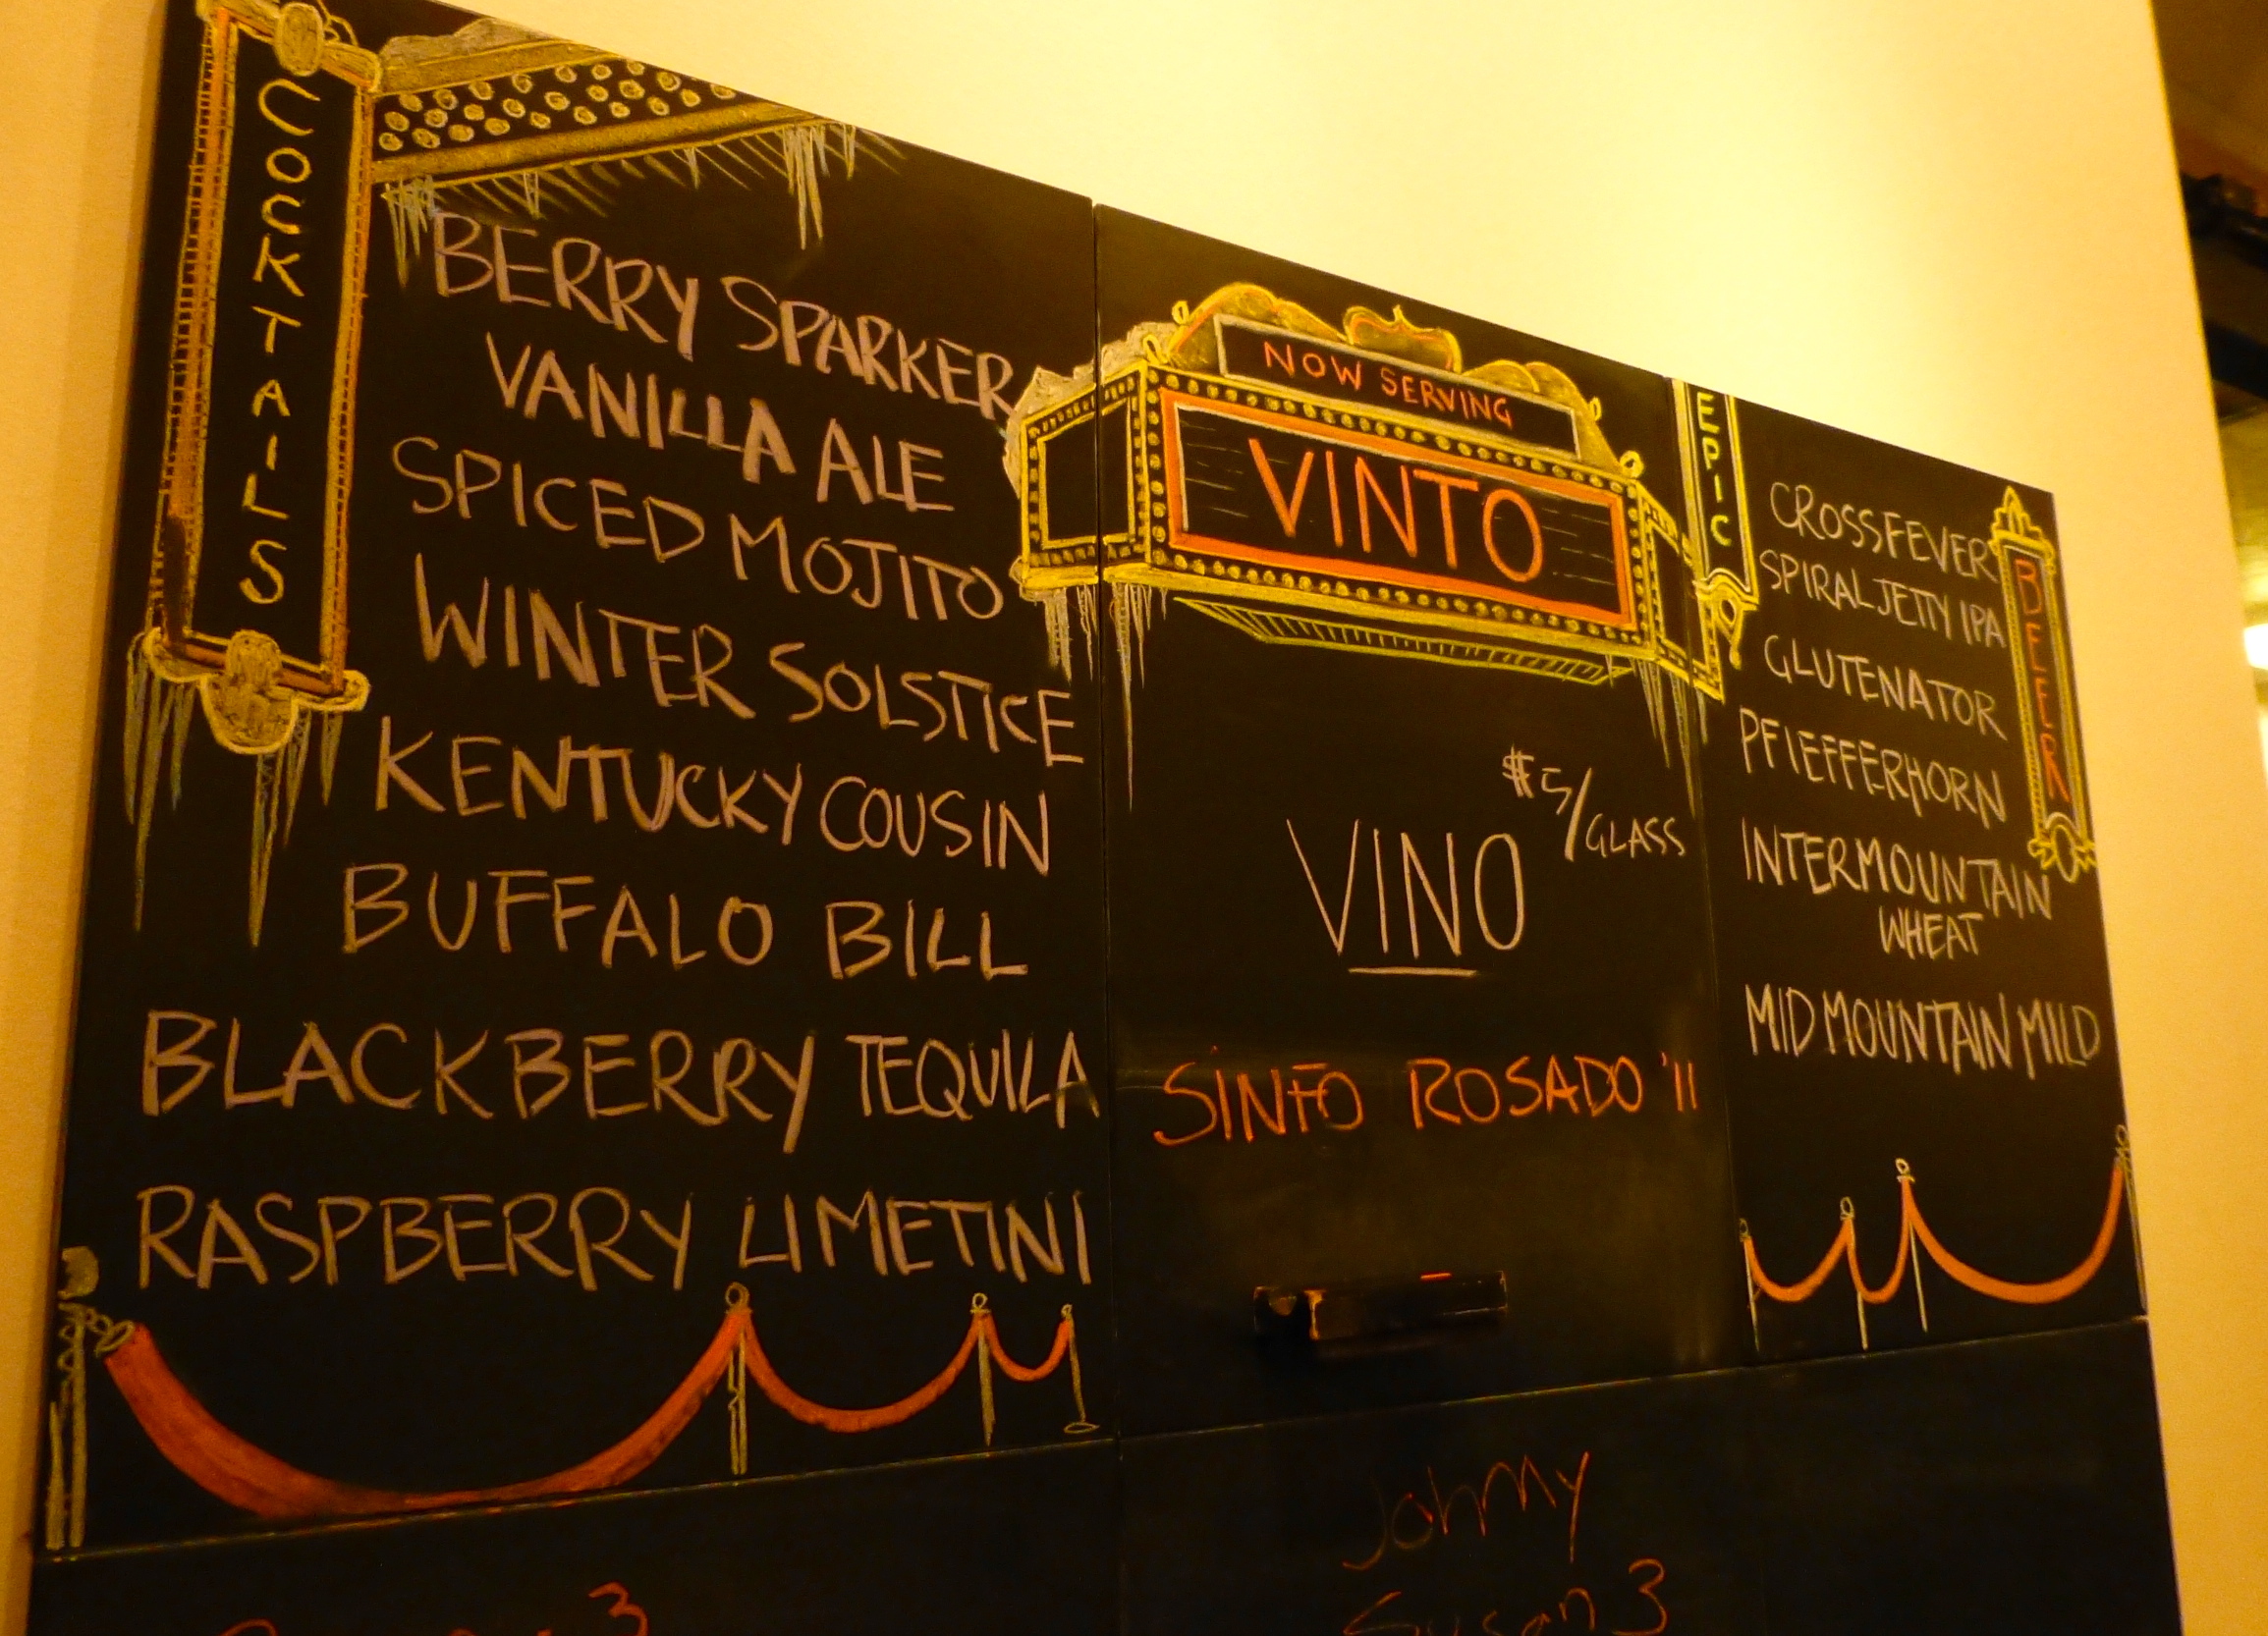 COCKTAILS
BERRY SPARKER
VANILLA ALE
SPICED MOJITO
WINTER SOLSTICE
KENTUCKY COUSIN
BUFFALO BILL
BLACKBERRY TEQUILA
RASPBERRY LIMETINI
NOW SERVING
VINTO
$5/GLASS
VINO
SINFO ROSADO '11
EPIC
BEER
CROSSFEVER
SPIRAL JETTY IPA
GLUTENATOR
PFIEFFERHORN
INTERMOUNTAIN
WHEAT
MID MOUNTAIN MILD
Johnny
Susan 3
3